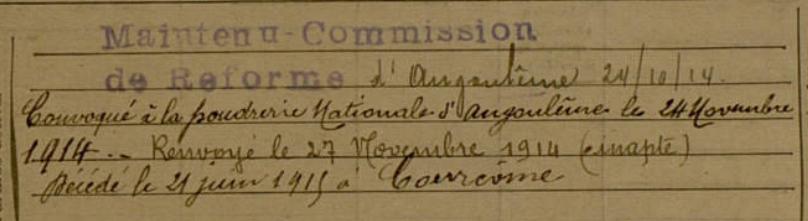 Maintenu-Commission
de Reforme d'Angoulême 24/10/14.
Convoqué à la poudrerie Nationale d'Angoulême le 24 Novembre
1914 -. Renvoyé le 27 Novembre 1914 (inapte)
Décédé le 21 juin 1915 à Courcôme